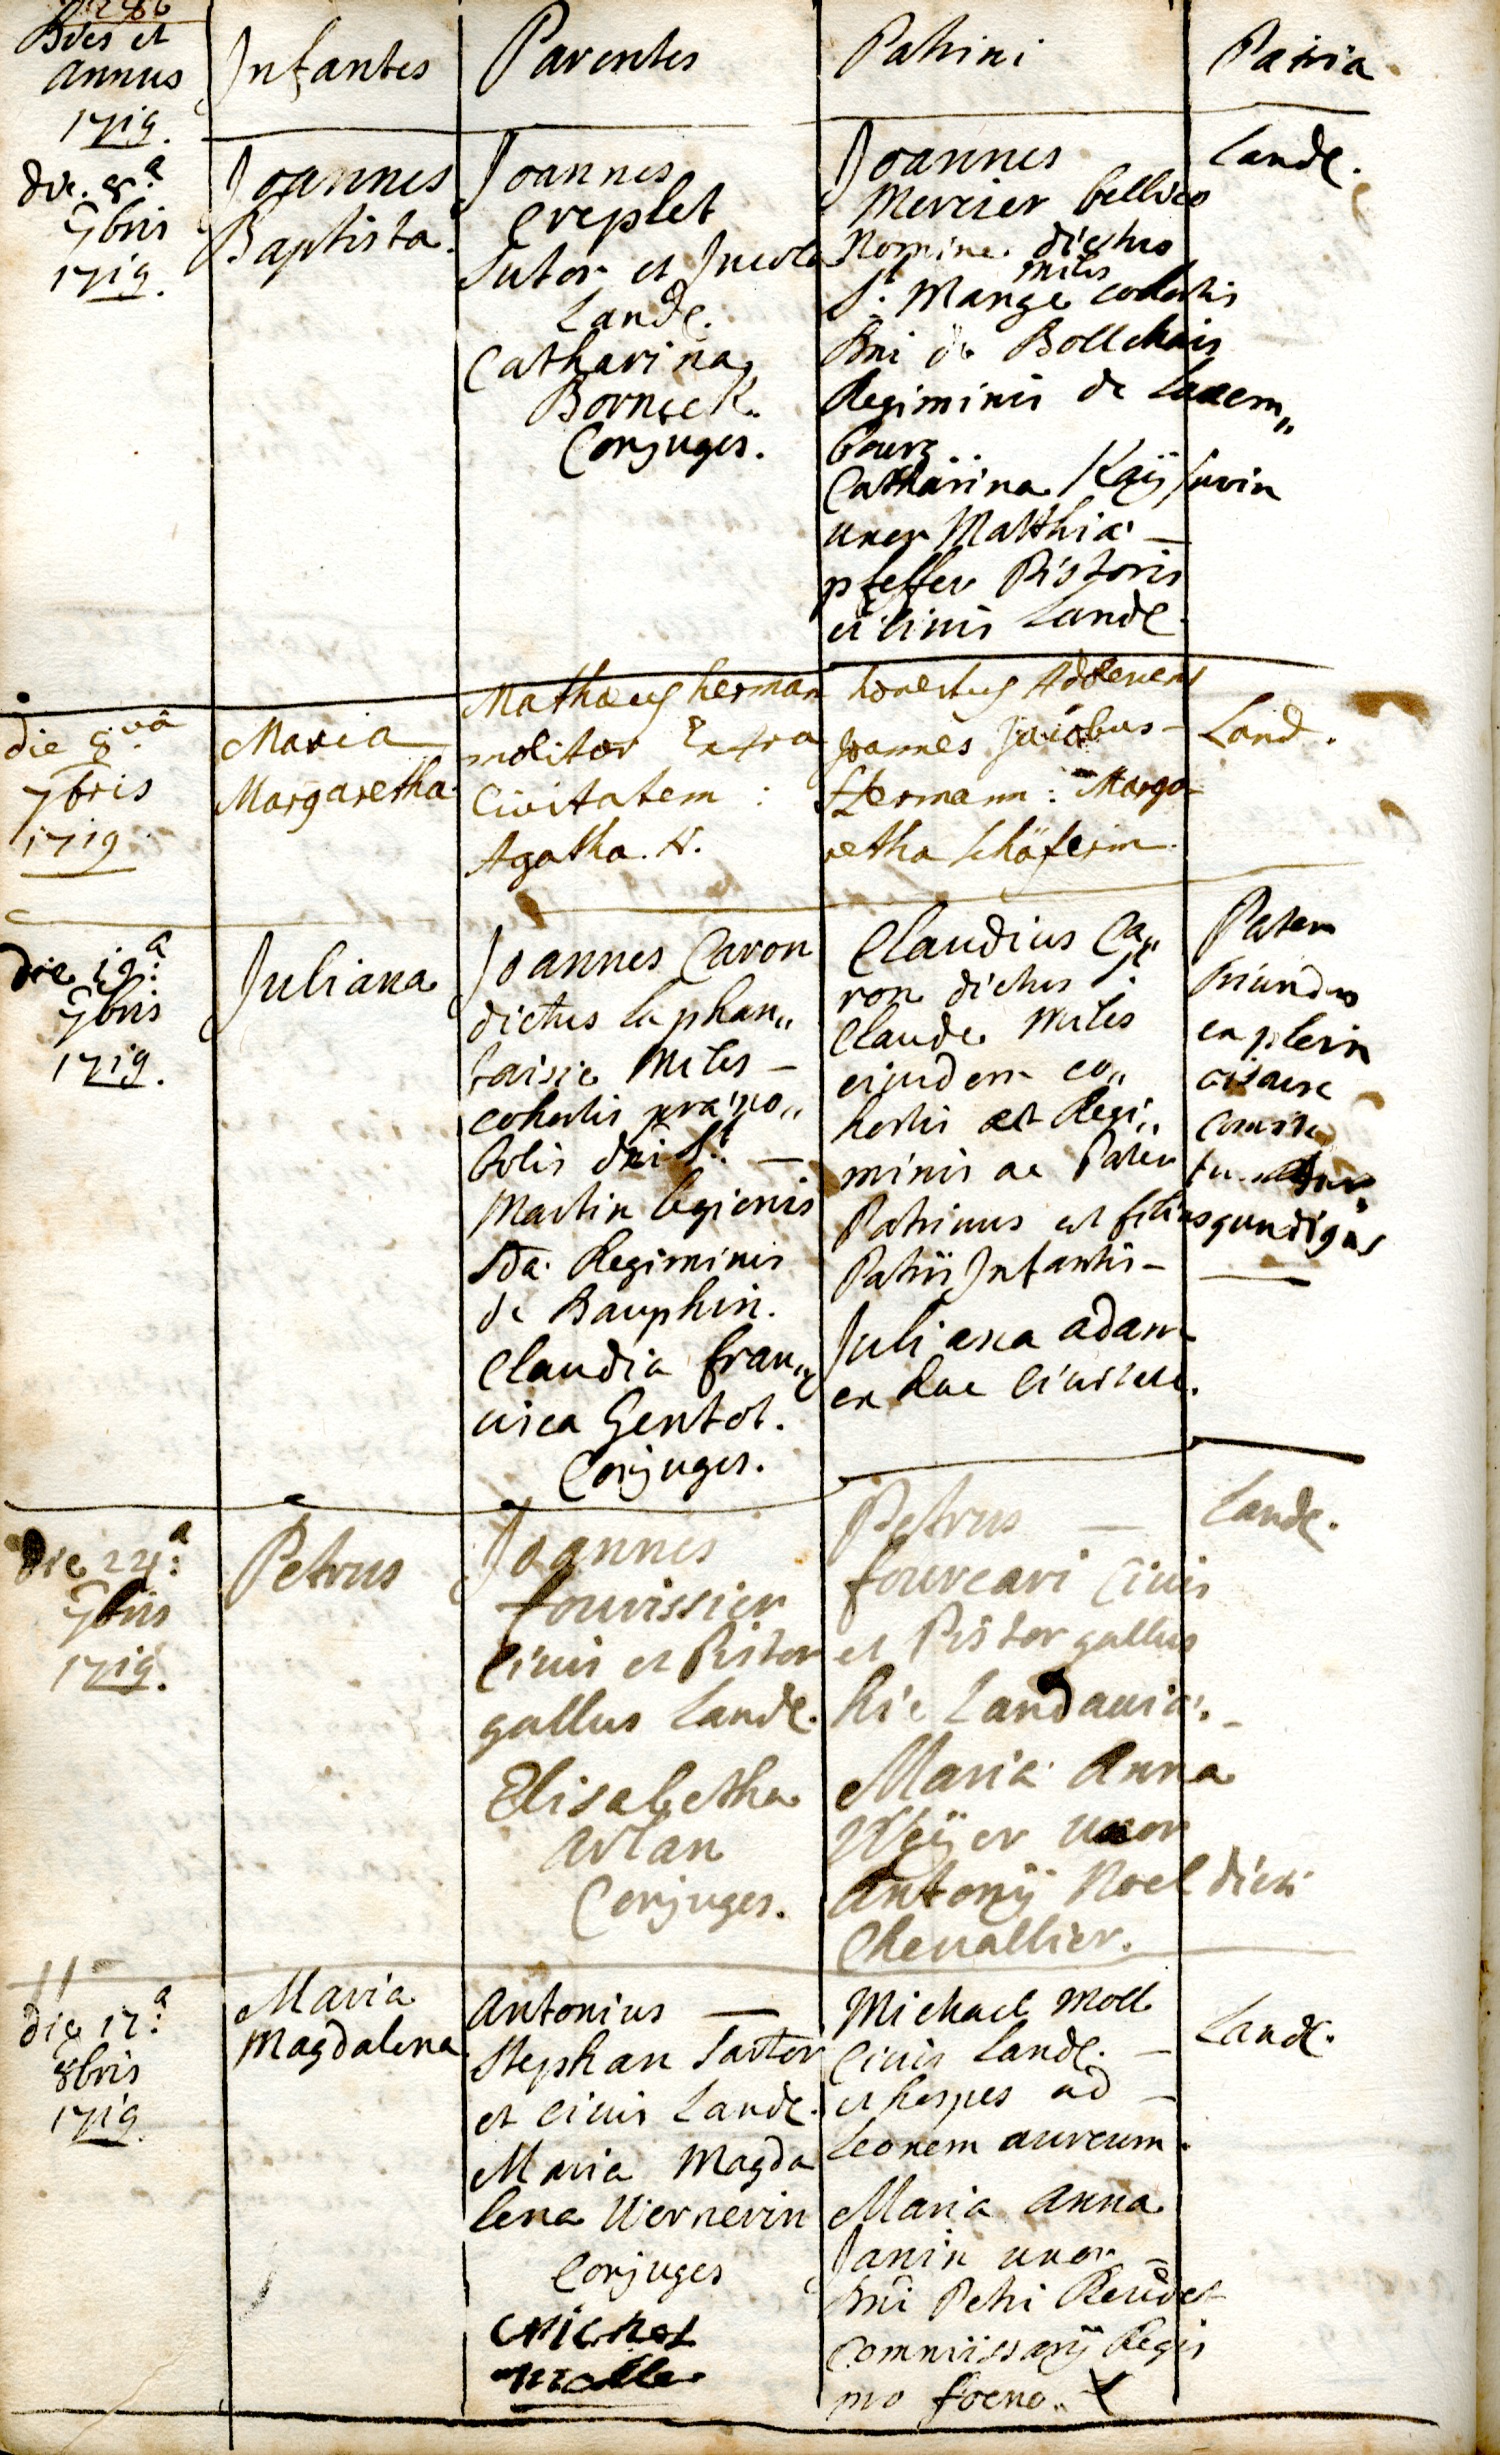 Dies et
annus
1719.
Infantes
Parentes
Patrini
Patria
die. 8.a
7bris
1719.
Joannes
Baptista.
Joannes
Creplet
Sutor et Incola
Landc.
Catharina
Borneck.
Conjuges.
Joannes
Mercier bellico
Nomine dictus
miles
St. Mange cohortis
Dni de Bollchais
Regiminis de Luxem„
bourg.
Catharina Kaÿserin
uxor Matthiä
pfeffer Pistoris
et civis Landc.
Landc.
die 8.va
7bris
1719
Maria
Margaretha.
Mathæus herman
molitor Extra
Civitatem :
Agatha. N.
honestus Adolescens
Joannes Jacobus
Hermann: Marga
retha Schäferin.
Land.
die 19.a
7bris
1719.
Juliana
Joannes Caron
dictus la phan„
taisie Miles
cohortis præno„
bilis dni St.
Martin legionis
Sda. Regiminis
de Dauphin.
Claudia fran„
cisca Gentot.
Conjuges.
Claudius Ca„
ron dictus St.
Claude Miles
eiusdem co„
hortis et Regi„
minis ac Pater
Patrinus est filius
Patrii Infantis
Juliana adam
ex hac Civitate.
Pater
oriundus
ex plein
oiseau
Comita
tu Bur„
gundiæ
die 24.a
7bris
1719.
Petrus
Joannes
fourissier
Civis et Pistor
gallus Landc.
Elisabetha
Arlan
Conjuges.
Petrus
fourcari Civis
et Pistor gallus
hic Landaviæ.
Maria Anna
Weÿer uxor
Antonÿ Noel dicti
Chevallier.
Landc.
die 12.a
8bris
1719.
Maria
Magdalena
Antonius
Stephan Sartor
et civis Landc.
Maria Magda
lena Wernerin
Conjuges
Michel
Molle
Michael Moll
Civis Landc.
et hospes ad
Leonem aureum.
Maria Anna
Janin uxor
Dni Petri Reudet
Commissarÿ Regis
pro foeno.
Landc.